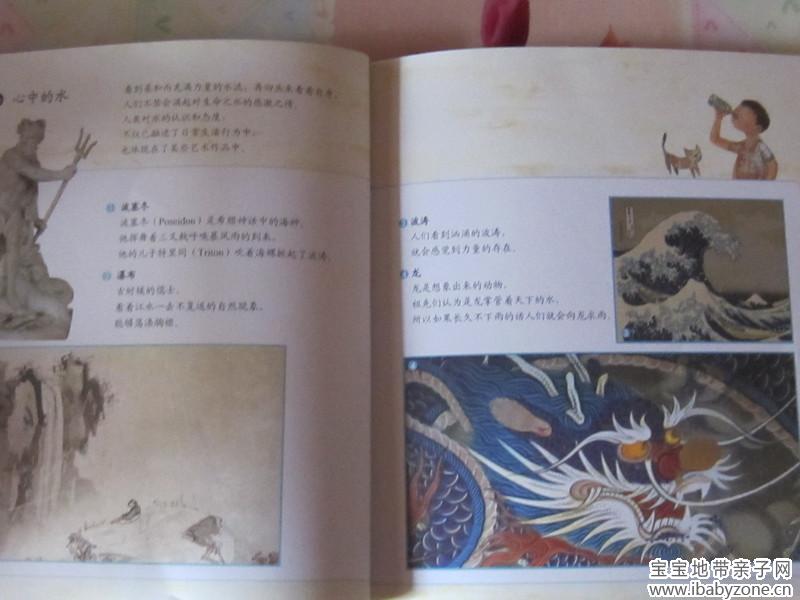 心中的水
看到柔和而充满力量的水流，再仰头来看看自身，
人们不禁会涌起对生命之水的感激之情。
人类对水的认识和态度，
不仅已融进了日常生活行为中，
也体现在了某些艺术作品中。
波塞冬
波塞冬（Poseidon）是希腊神话中的海神。
他挥舞着三叉戟呼唤暴风雨的到来。
他的儿子特里同（Triton）吹着海螺掀起了波涛。
瀑布
古时候的儒士，
看着江水一去不复返的自然现象，
能够荡涤胸襟。
波涛
人们看到汹涌的波涛，
就会感觉到力量的存在。
龙
龙是想象出来的动物。
祖先们认为是龙掌管着天下的水，
所以如果长久不下雨的话人们就会向龙求雨。
宝宝地带亲子网
www.ibabyzone.cn